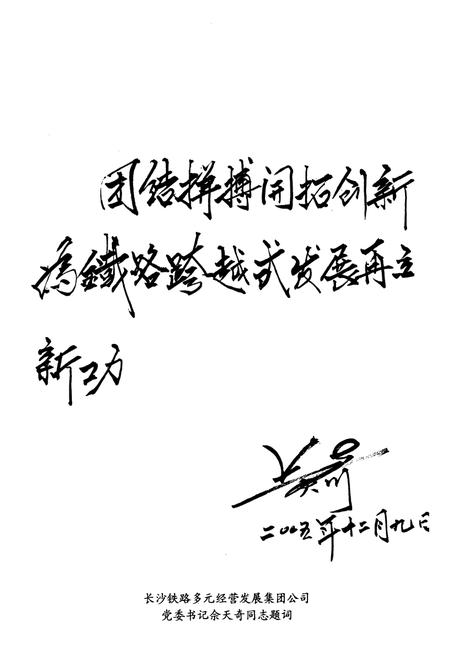 团结拼搏开拓创新
为鐵路跨越式发展再立
新功
余天奇
二〇〇五年十二月九日
长沙铁路多元经营发展集团公司
党委书记余天奇同志题词